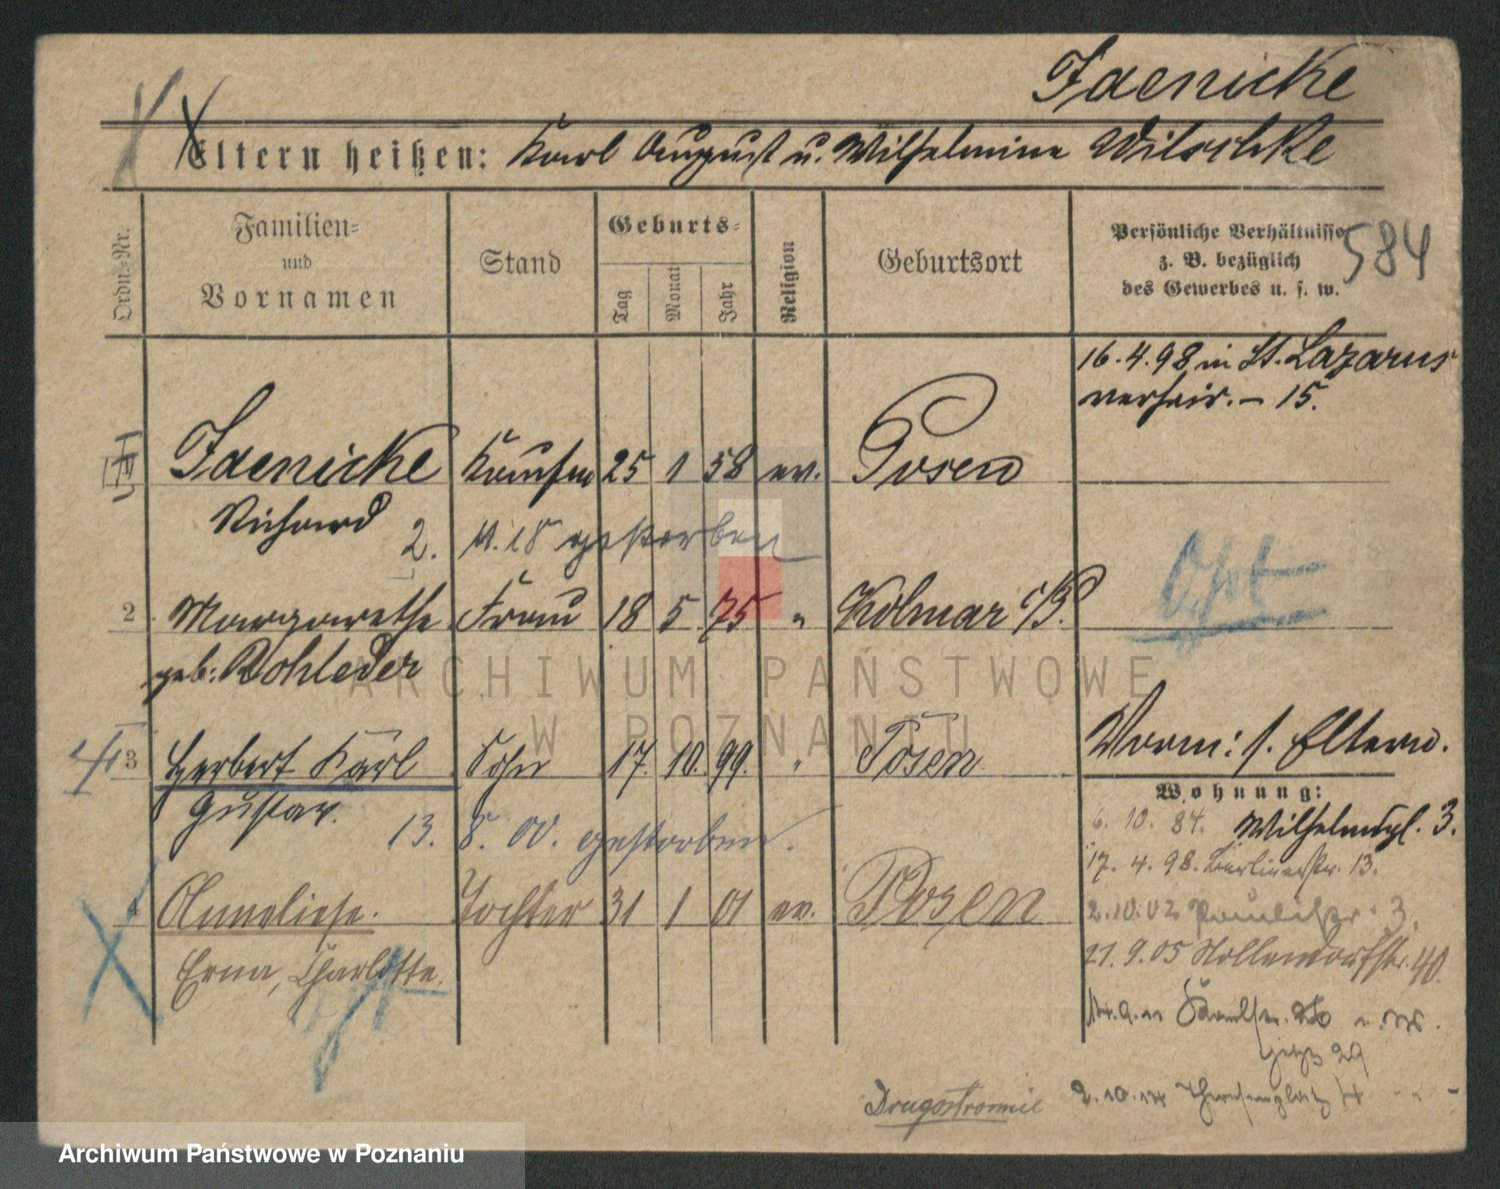 Jaenicke
Eltern heißen: Karl August u. Wilhelmine Wilschke
Ordn.-Nr.
Familien- und Vornamen
Stand
Geburts-
Tag
Monat
Jahr
Religion
Geburtsort
Persönliche Verhältnisse
z. B. bezüglich
des Gewerbes u. s. w.
584
16.4.98 in St. Lazarus
verheir. – 15.
Jaenicke Kaufm 25 1 58 ev. Posen
Richard
2. 11. 18 gestorben
2 Margarethe Frau 18 5 75 " Kolmar i/P.
geb: Rohleder
3 Herbert Karl Sohn 17. 10. 99. " Posen
Gustav.
13. 8. 00. gestorben.
Vorm: s. Eltern.
Wohnung:
6. 10. 84. Wilhelmspl. 3.
17. 4. 98. Berlinerstr. 13.
4 Anneliese. Tochter 31 1 01 ev. Posen
Erna, Charlotte.
2.10.02 Paulistr. 3.
21.9.05 Hollendorfstr. 40.
jetzt 29
Drugostronnie
2.10.14
ARCHIWUM PAŃSTWOWE
W POZNANIU
Archiwum Państwowe w Poznaniu